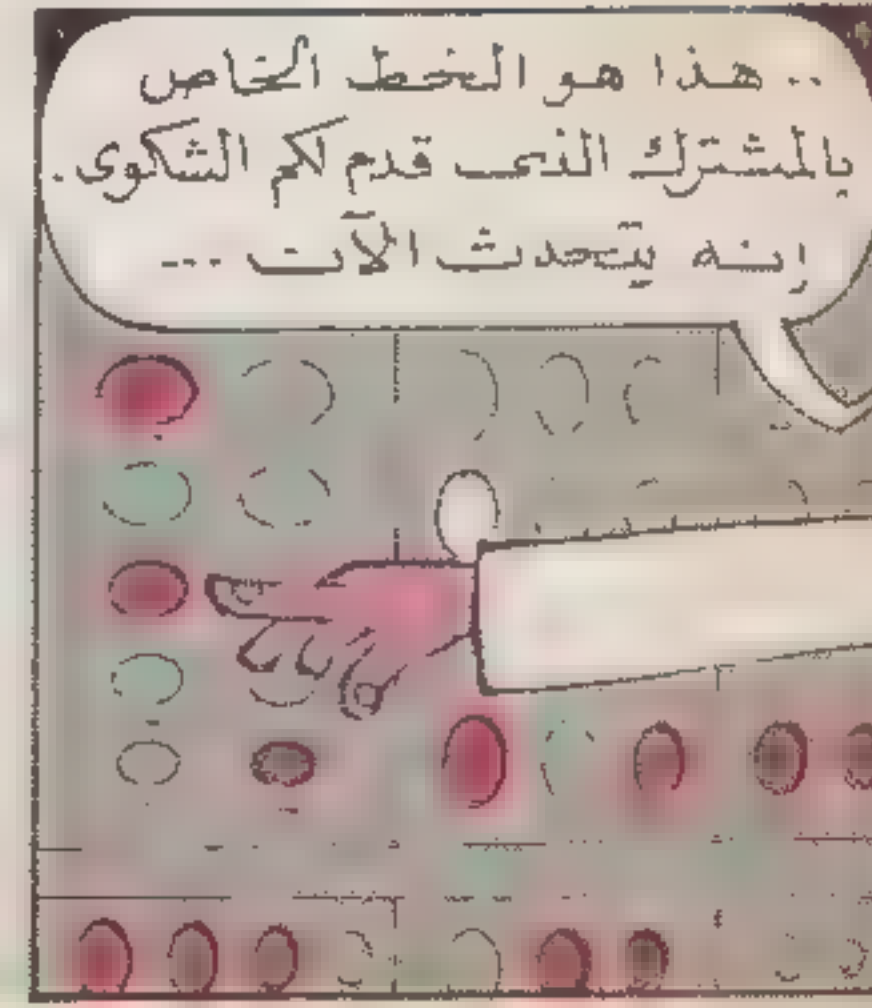 .. هذا هو الخط الخاص
بالمشترك الذى قدم لكم الشكوى.
إنه يتحدث الآن ...